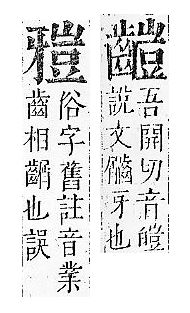 齾
吾開切音皚
說文䶣牙也
𤘌
俗字舊註音業
齒相齺也誤